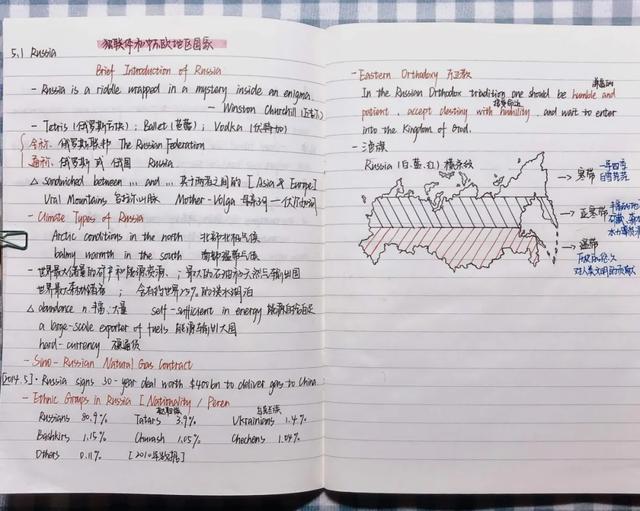 独联体和中东欧地区国家
5.1 Russia
Brief Introduction of Russia
- Russia is a riddle wrapped in a mystery inside an enigma.
- Winston Churchill
- Tetris (俄罗斯方块); Ballet (芭蕾); Vodka (伏特加)
全称: 俄罗斯联邦 The Russian Federation
通称: 俄罗斯 或 俄国 Russia
△ sandwiched between ... and ... 夹于两者之间的 [Asia & Europe]
Ural Mountains 乌拉尔山脉 Mother-Volga 母亲河—伏尔加河
- Climate Types of Russia
Arctic conditions in the north 北部北极气候
balmy warmth in the south 南部温带气候
- 世界最大储量的矿产和能源资源.; 最大的石油和天然气输出国
世界最大森林储备 ; 含有约世界25%的淡水湖泊
△ abundance n.丰富、大量 self-sufficient in energy 能源自给自足
a large-scale exporter of fuels 能源输出大国
hard-currency 硬通货
- Sino-Russian Natural Gas Contract
[2014.5]. Russia signs 30-year deal worth $400bn to deliver gas to China.
- Ethnic Groups in Russia [Nationality / Percen
Russians 80.9% Tatars 3.9% Ukrainians 1.4%
Bashkirs 1.15% Chuvash 1.05% Chechens 1.04%
Others 0.11% [2010年数据]
- Eastern Orthodoxy 东正教
In the Russian Orthodox tradition one should be humble and
patient, accept destiny with humility, and wait to enter
into the Kingdom of God.
Russia (白、蓝、红) 横条纹
寒带
一年四季
白雪茫茫
亚寒带
温带
历史的悠久
对人类文明的贡献